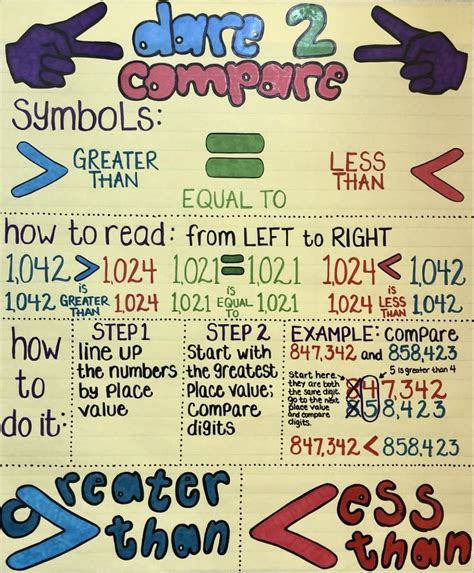 dare 2
compare
Symbols:
> GREATER THAN
= EQUAL TO
LESS THAN <
how to read: from LEFT to RIGHT
1,042 > 1,024 1,021 = 1,021 1,024 < 1,042
is is is
1,042 GREATER THAN 1,024 1,021 EQUAL TO 1,021 1,024 LESS THAN 1,042
how
to
do it:
STEP 1
line up
the numbers
by Place
value
STEP 2
Start with
the greatest
Place value;
Compare
digits
EXAMPLE: compare
847,342 and 858,423
start here,
they are both
the same digit.
go to the next
place value
and compare
digits.
5 is greater than 4
847,342
858,423
847,342 < 858,423
Greater
> than
< Less
than